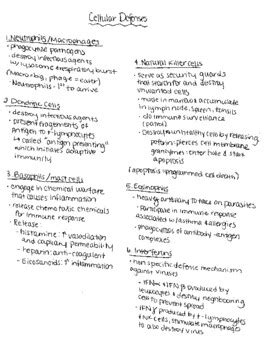 Cellular Defenses
1. Neutrophils/Macrophages
- phagocytize pathogens
- destroy infectious agents
w/ lysosome & respiratory burst
(Macro = big, phage = eater)
- Neutrophils - 1st to arrive
2. Dendritic Cells
- destroy infectious agents
- present fragments of
antigen to T-lymphocytes
↳ called "antigen presenting"
which initiates adaptive
immunity
3. Basophils/mast cells
- engage in chemical warfare
that causes inflammation
- release chemotaxic chemicals
for immune response
- Release
· histamine: ↑ vasodilation
and capillary permeability
· heparin: anti-coagulant
· Eicosanoids: ↑ inflammation
4. Natural Killer Cells
- serve as security guards
that search for and destroy
unwanted cells
- made in marrow & accumulate
in lymph node, spleen, tonsils
- do immune surveillance
(patrol)
- Destroy unhealthy cells by releasing
· perforin: pierces cell membrane
· granzymes: enter hole & start
apoptosis
(apoptosis = programmed cell death)
5. Eosinophils
- heavily antiviral to face on parasites
- participate in immune response
associated w/ asthma & allergies
- phagocytosis of antibody-antigen
complexes
6. Interferins
- non specific defense mechanisms
against viruses
· IFNα & IFNβ produced by
leukocytes & destroy neighboring
cell to prevent spread
· IFNγ produced by T-lymphocytes
& NK cells, stimulate macrophages
to also destroy virus